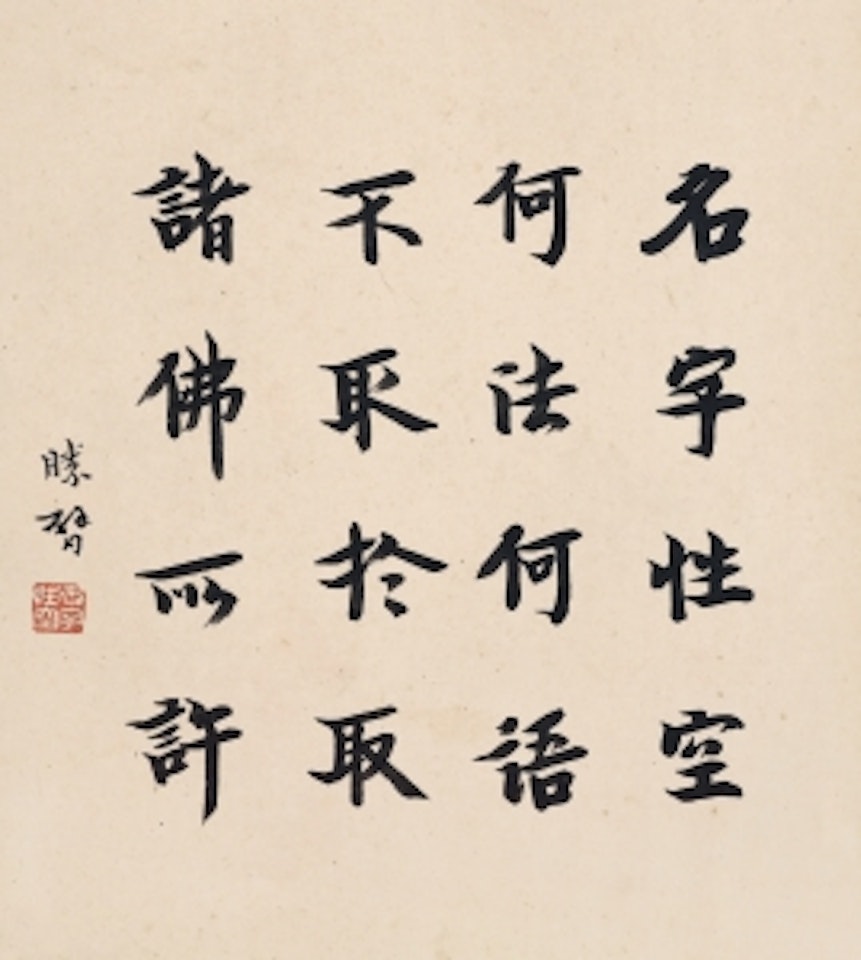 名字性空
何法何語
不取於取
諸佛所許
勝賢